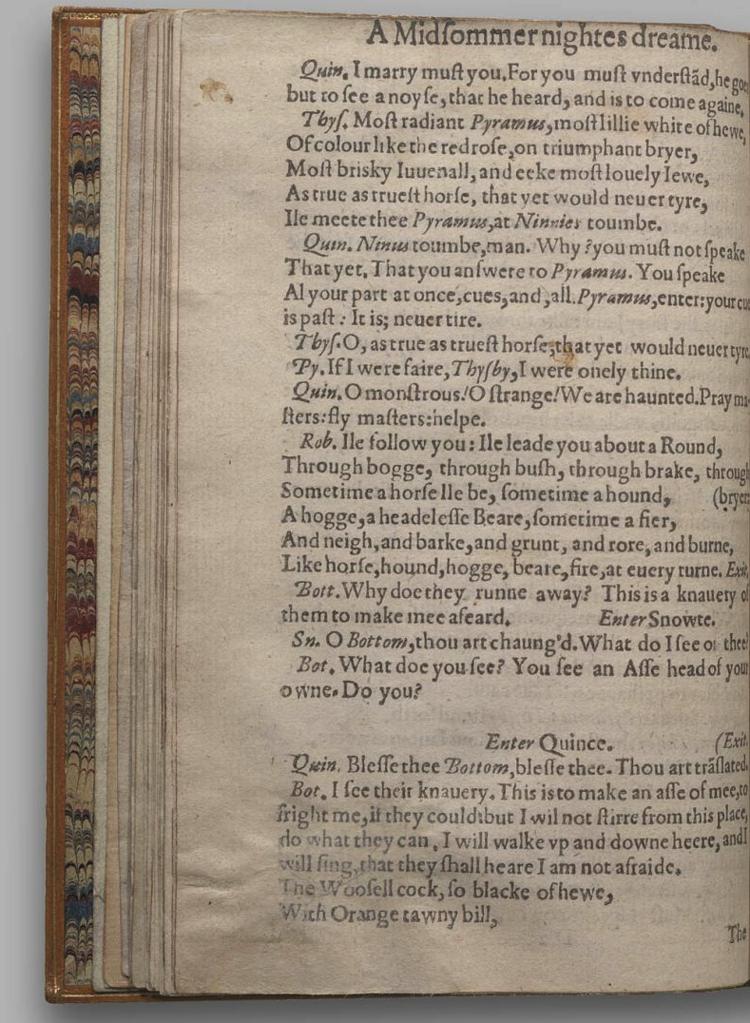 A Midſommer nightes dreame.
Quin. I marry muſt you. For you muſt vnderſtād, he goes
but to ſee a noyſe, that he heard, and is to come againe.
Thyſ. Moſt radiant Pyramus, moſt lillie white of hewe,
Of colour like the red roſe, on triumphant bryer,
Moſt brisky Iuuenall, and eeke moſt louely Iewe,
As true as trueſt horſe, that yet would neuer tyre,
Ile meete thee Pyramus, at Ninnies toumbe.
Quin. Ninus toumbe, man. Why? you muſt not ſpeake
That yet. That you anſwere to Pyramus. You ſpeake
Al your part at once, cues, and, all. Pyramus, enter: your cue
is paſt: It is; neuer tire.
Thyſ. O, as true as trueſt horſe, that yet would neuer tyre.
Py. If I were faire, Thyſby, I were onely thine.
Quin. O monſtrous! O ſtrange! We are haunted. Pray ma-
ſters: fly maſters: helpe.
Rob. Ile follow you: Ile leade you about a Round,
Through bogge, through buſh, through brake, through
Sometime a horſe Ile be, ſometime a hound, (bryer:
A hogge, a headeleſſe Beare, ſometime a fier,
And neigh, and barke, and grunt, and rore, and burne,
Like horſe, hound, hogge, beare, fire, at euery turne. Exit.
Bott. Why doe they runne away? This is a knauery of
them to make mee afeard. Enter Snowte.
Sn. O Bottom, thou art chaung'd. What do I ſee on thee?
Bot. What doe you ſee? You ſee an Aſſe head of your
owne. Do you?
Enter Quince. (Exit.
Quin. Bleſſe thee Bottom, bleſſe thee. Thou art trāſlated.
Bot. I ſee their knauery. This is to make an aſſe of mee, to
fright me, if they could: but I wil not ſtirre from this place,
do what they can. I will walke vp and downe heere, and I
will ſing, that they ſhall heare I am not afraide.
The Wooſell cock, ſo blacke of hewe,
With Orange tawny bill,
The